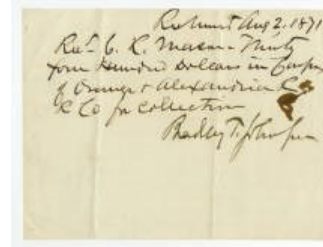 Richmond Aug 2. 1871
Rec'd C. R. Mason - Thirty
four hundred dollars in Coupons
of Orange & Alexandria R
R Co for collection
Bradley T. Johnson